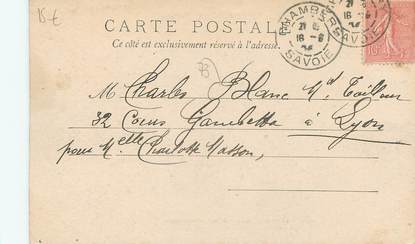 15€
CARTE POSTALE
Ce côté est exclusivement réservé à l'adresse.
CHAMBÉRY
16 - 6
SAVOIE
M Charles Blanc Md Tailleur
32 Cours Gambetta à Lyon
pour Melle Charlotte Masson,